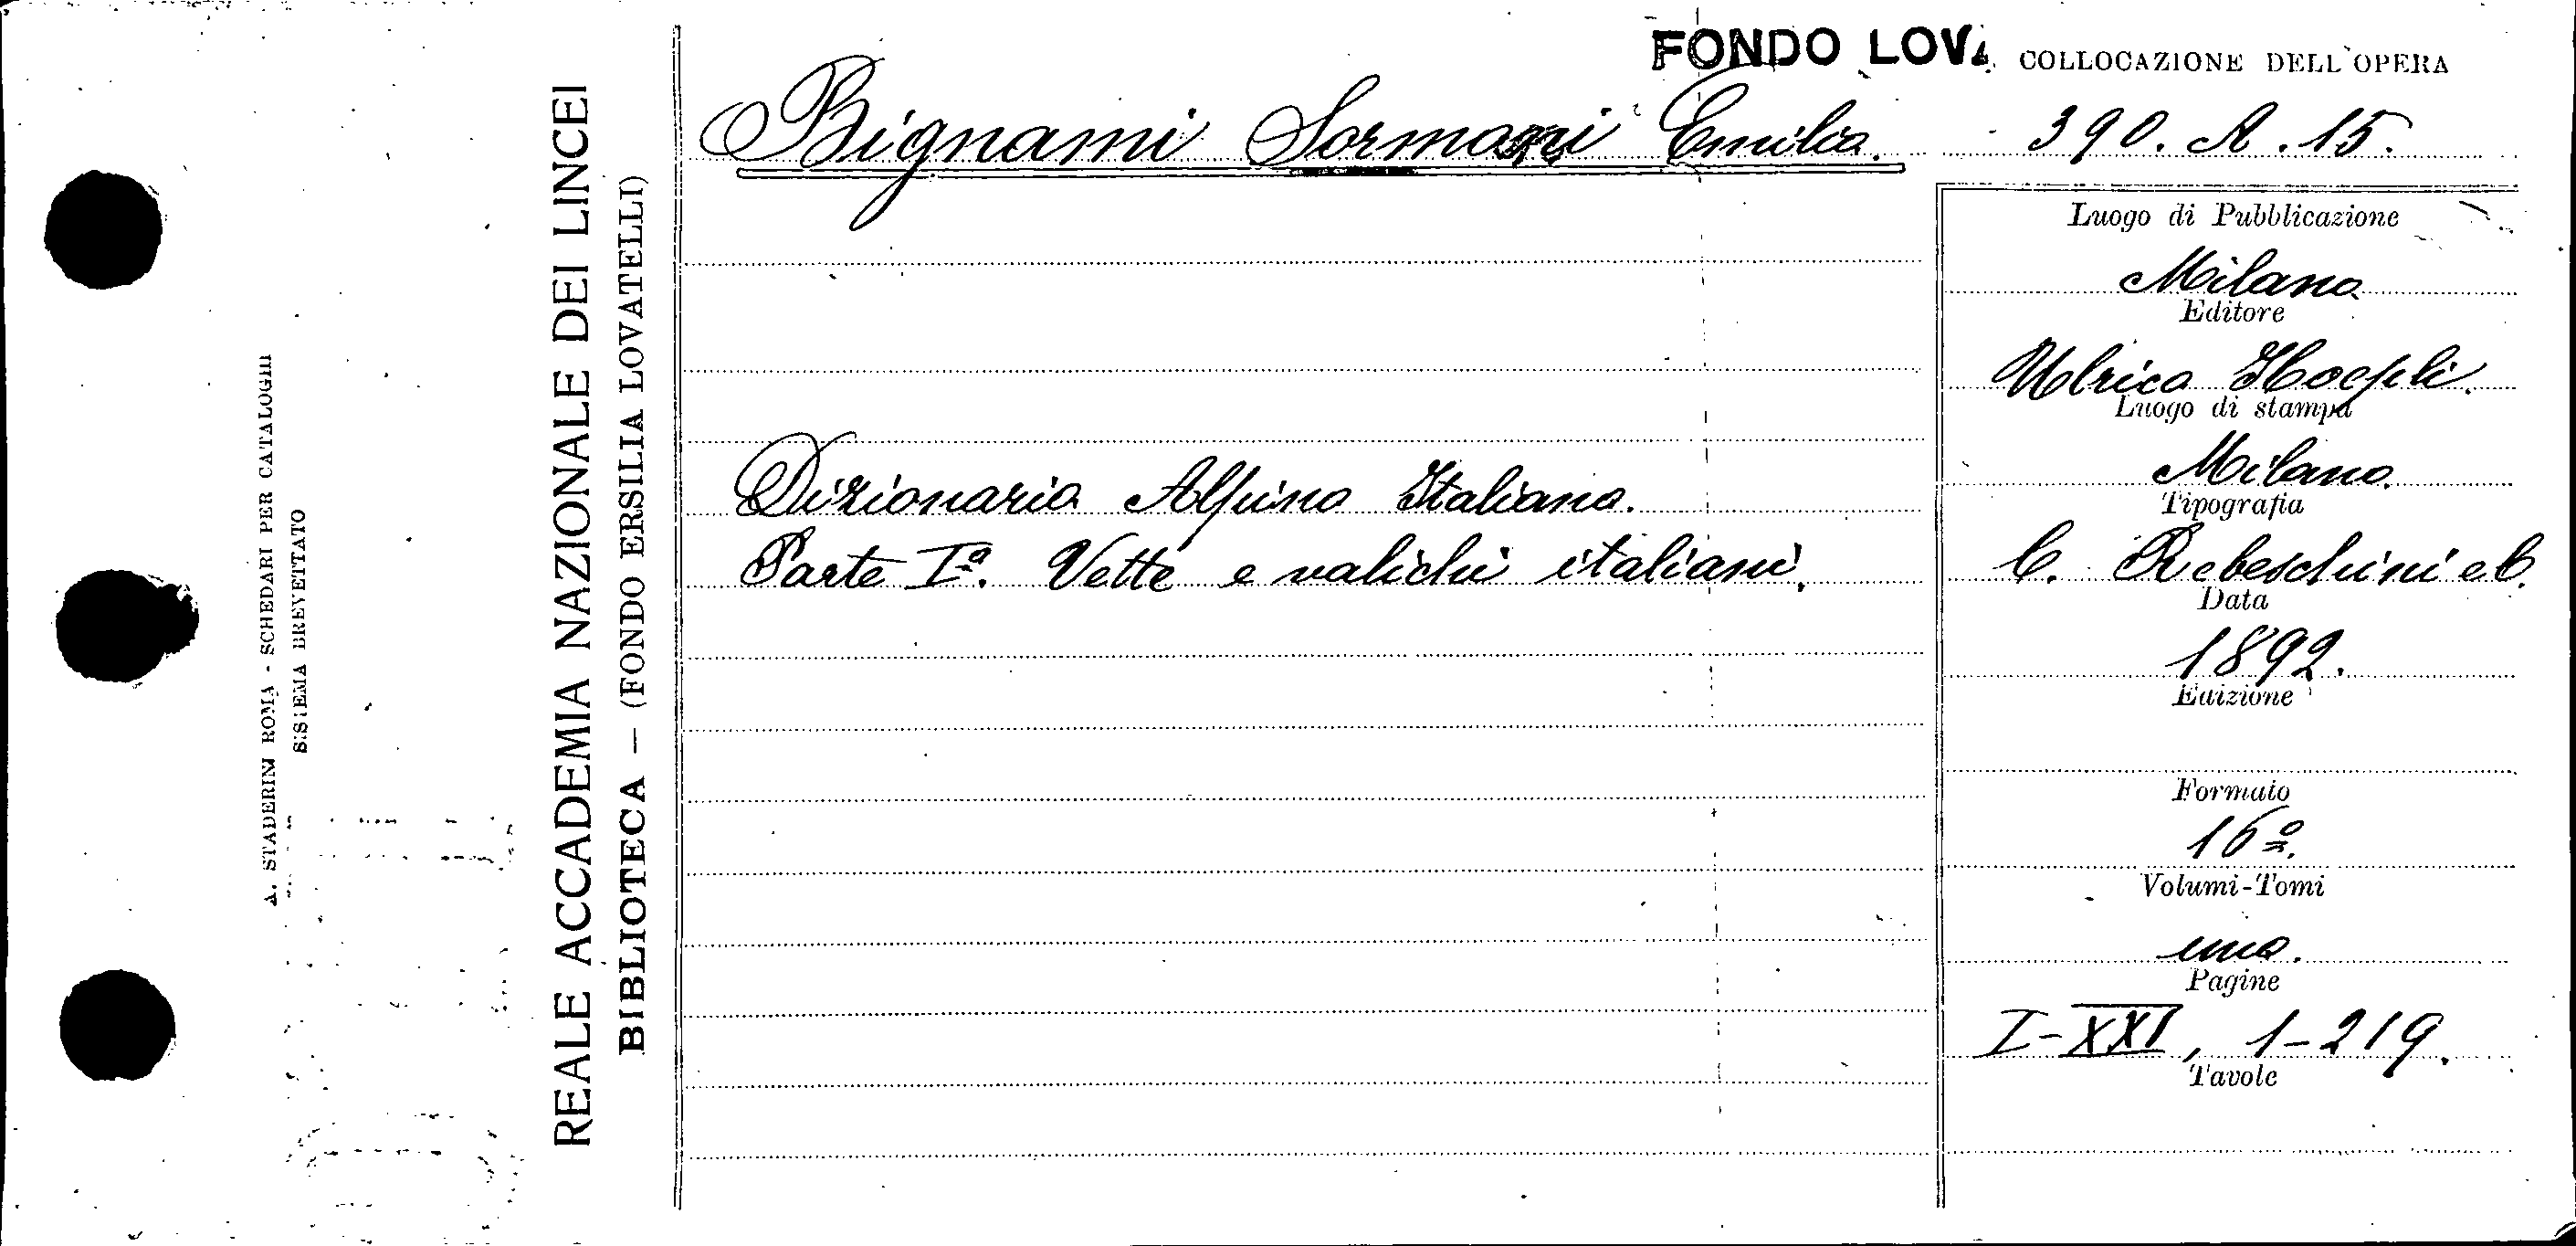 FONDO LOVA
COLLOCAZIONE DELL'OPERA
Bignami Sormani Emilio.
390. A. 15.
Luogo di Pubblicazione
Milano
Editore
Ulrico Hoepli.
Luogo di stampa
Milano.
Tipografia
C. Rebeschini e C.
Data
1892.
Edizione
Formato
16º.
Volumi-Tomi
uno.
Pagine
I-XXI, 1-219.
Tavole
Dizionario Alpino Italiano.
Parte Iª. Vette e valichi italiani.
REALE ACCADEMIA NAZIONALE DEI LINCEI
BIBLIOTECA — (FONDO ERSILIA LOVATELLI)
A. STADERINI ROMA - SCHEDARI PER CATALOGHI
SISTEMA BREVETTATO